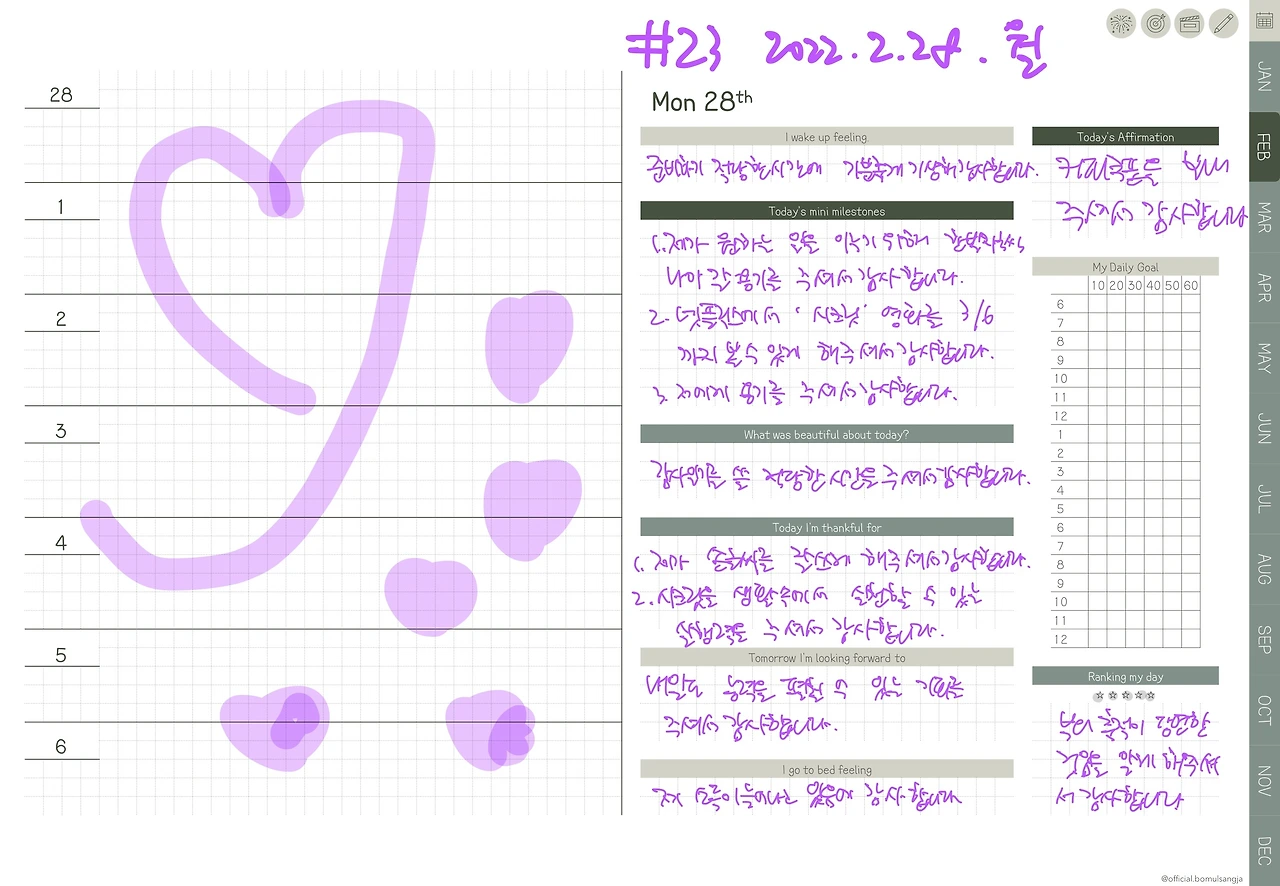 #23 2022.2.28.월
Mon 28th
28
1
2
3
4
5
6
I wake up feeling.
준비하기 적당한 시간에 기분좋게 기상해 감사합니다.
Today's mini milestones
1. 제가 원하는 일을 이루기 위해 한발자국씩
나아갈 용기를 주셔서 감사합니다.
2. 넷플릭스에서 '시크릿' 영화를 3/6
까지 볼 수 있게 해주셔서 감사합니다.
3. 저에게 용기를 주셔서 감사합니다.
What was beautiful about today?
감사일기를 쓸 적당한 시간을 주셔서 감사합니다.
Today I'm thankful for
1. 제가 해주셔서 감사합니다.
2. 시크릿을 생활속에서 실천할 수 있는
실행력을 주셔서 감사합니다.
Tomorrow I'm looking forward to
내일도 능력을 펼칠 수 있는 기회를
주셔서 감사합니다.
I go to bed feeling
감사합니다
Today's Affirmation
커피쿠폰을 보내
주셔서 감사합니다
My Daily Goal
10 20 30 40 50 60
6
7
8
9
10
11
12
1
2
3
4
5
6
7
8
9
10
11
12
Ranking my day
부의 축적이 당연한
것임을 알게 해주셔
서 감사합니다
JAN
FEB
MAR
APR
MAY
JUN
JUL
AUG
SEP
OCT
NOV
DEC
@official.bomulsangja